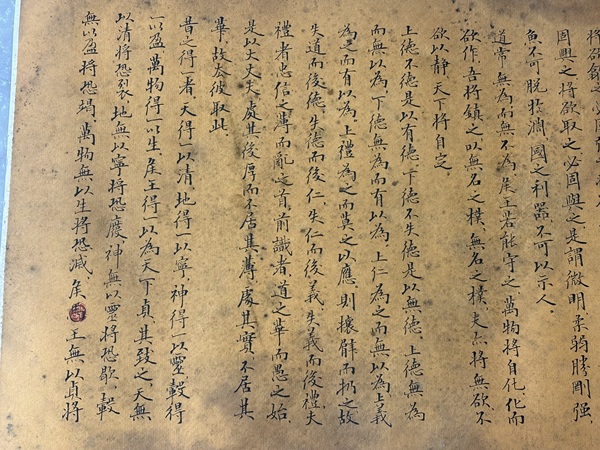 將欲
固興之將欲取之必固與之是謂微明柔弱勝剛强、
魚不可脫於淵、國之利器不可以示人、
道常無為而無不為、侯王若能守之、萬物將自化、化而
欲作、吾將鎮之以無名之樸、無名之樸、夫亦將無欲、不
欲以靜、天下將自定、
上德不德是以有德、下德不失德是以無德、上德無為
而無以為、下德無為而有以為、上仁為之而無以為、上義
為之而有以為、上禮為之而莫之以應、則攘臂而扔之故
失道而後德、失德而後仁、失仁而後義、失義而後禮、夫
禮者、忠信之薄而亂之首、前識者、道之華而愚之始、
是以大丈夫處其後厚而不居其薄、處其實不居其
華、故去彼取此、
昔之得一者、天得一以清、地得一以寧、神得一以靈、轂得
一以盈、萬物得一以生、侯王得一以為天下貞、其致之、天無
以清將恐裂、地無以寧將恐廢、神無以靈將恐歇、轂
無以盈將恐竭、萬物無以生將恐滅、侯王無以貞將